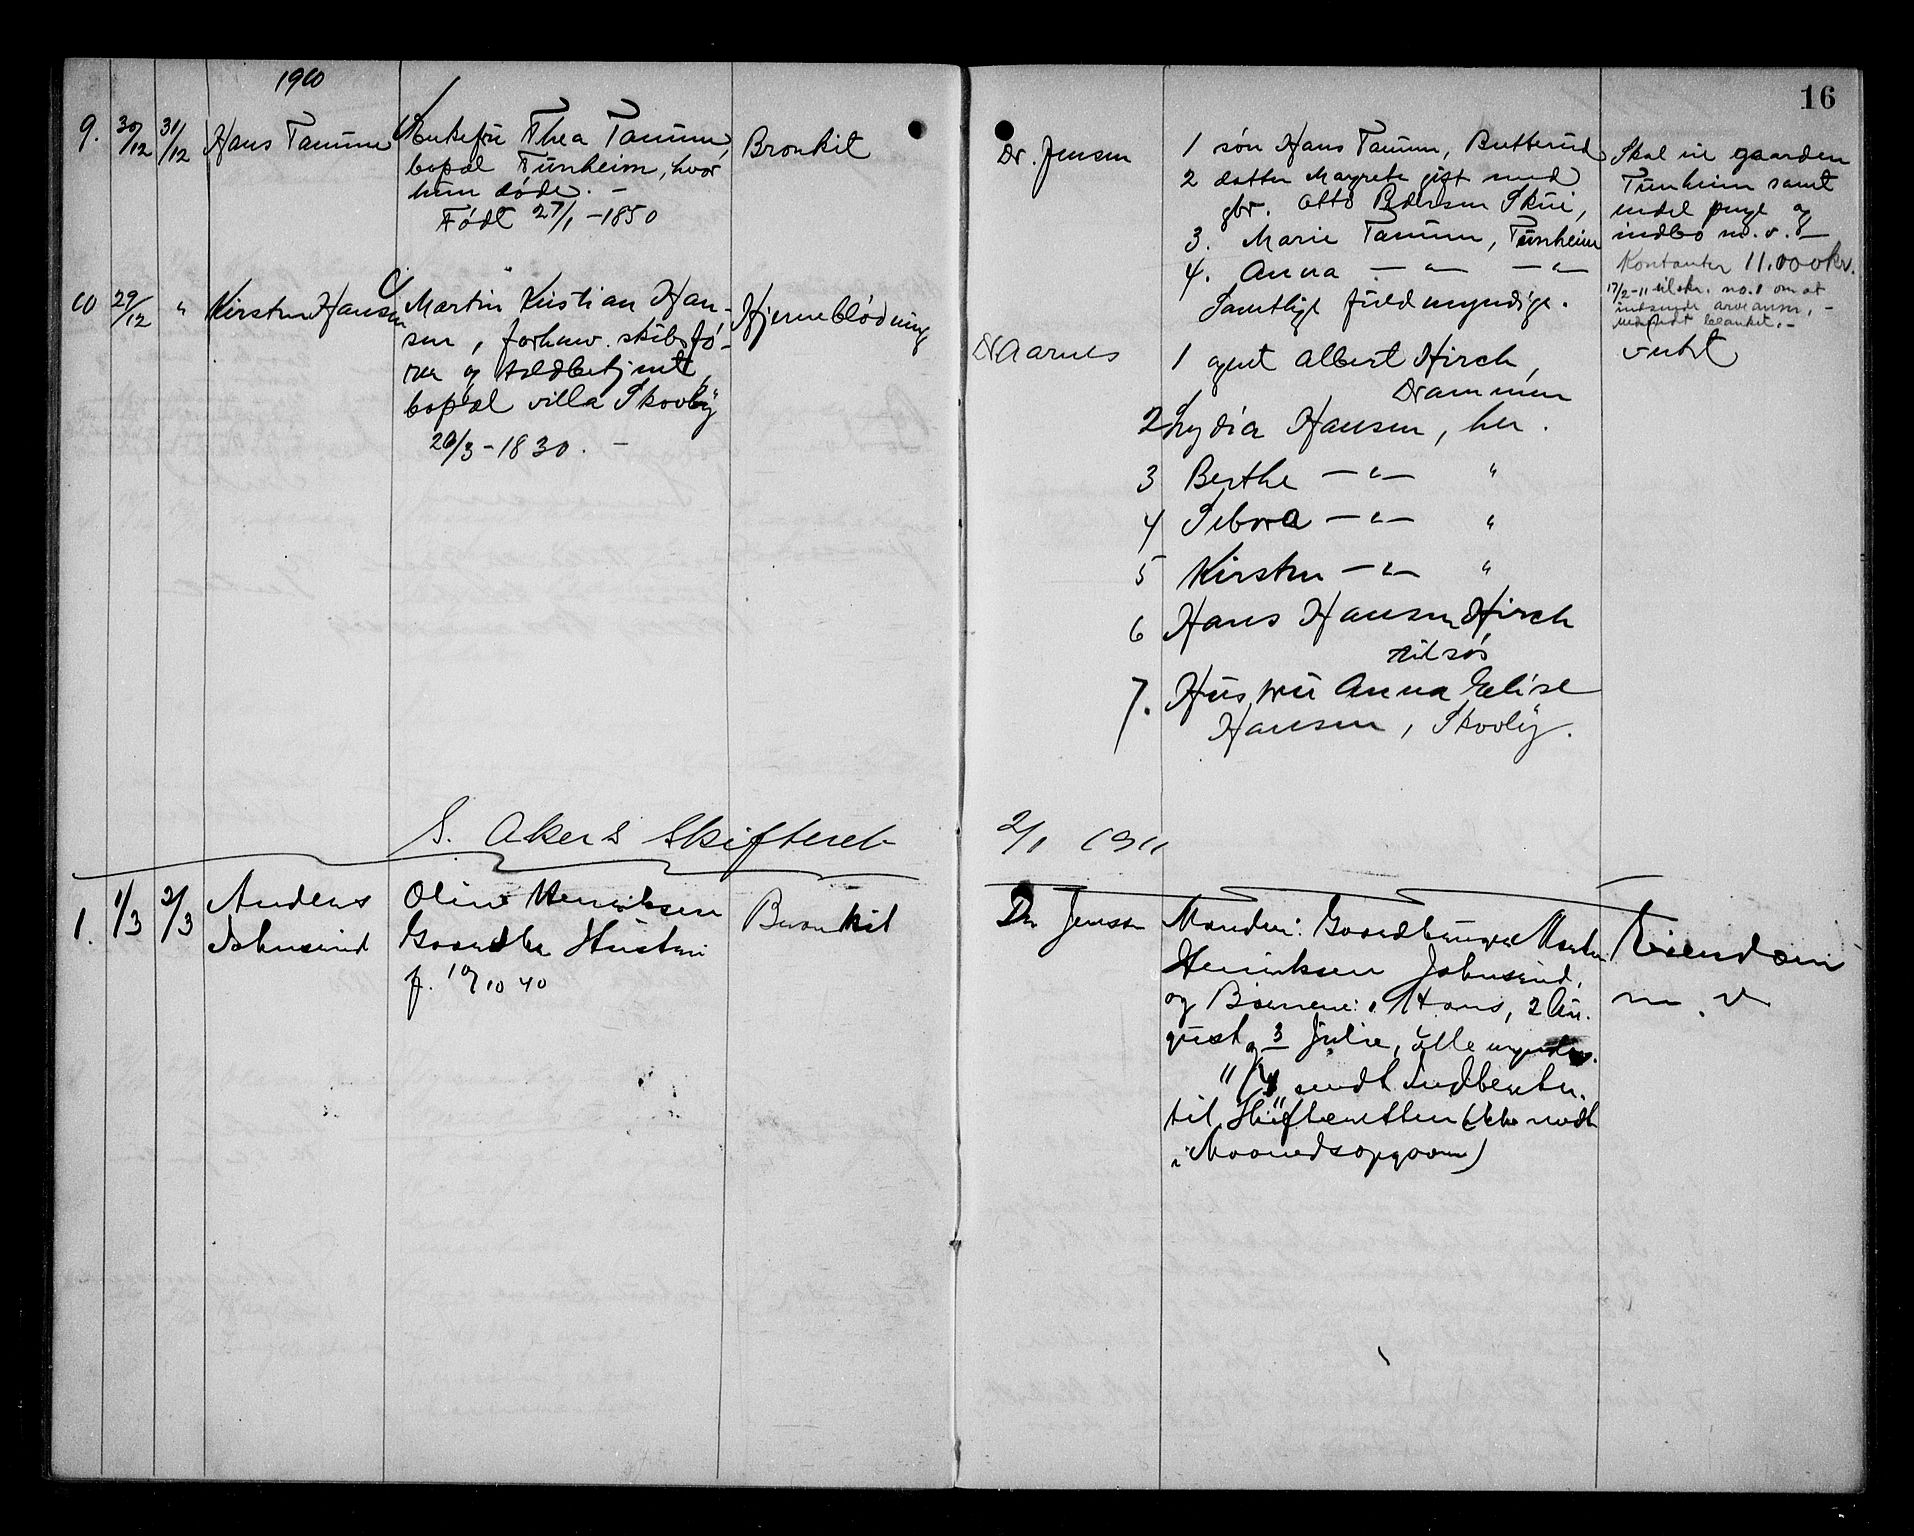 1910
16
9. 30/12 31/12 Hans Tanum
Enkefru Thea Tanum,
bopæl Tunheim, hvor
hun døde. –
Født 27/1 – 1850
Bronkit
Dr. Jensen
1 søn Hans Tanum, Butterud
2 datter Margrete gift med
gbr. Otto Pedersen Skui,
3. Marie Tanum, Tunheim
4. Anna – " – – " –
Samtlige fuldmyndige.
Skal eie gaarden
Tunheim samt
endel penge og
indbo m. v. –
Kontanter 11.000 kr.
17/2-11 tilskr. no. 1 om at
indsende arveanm., –
vedlagt blanket. –
10 29/12 " Kirsten Hansen
Martin Kristian Han-
sen, forhenv. skibsfø-
rer og toldbetjent,
bopæl villa Skovly
20/3 – 1830. –
Hjerneblødning
Dr Aarnes
1 agent Albert Hirch,
Drammen
2 Lydia Hansen, her.
3 Berthe – " – "
4 Sibora – " – "
5 Kirsten – " – "
6 Hans Hansen Hirch
tilsøs
7. Hustru Anna Elise
Hansen, Skovly.
ukjt
S. Akers Skifteret
2/1 1911
1. 1/3 2/3 Anders
Johnsrud
Oline Henriksen
Gaardbr Hustru
f. 10/10 40
Bronkit
Dr Jensen
Manden: Gaardbruger Martin
Henriksen Johnsrud,
og Børnene: 1 Hans, 2 Au-
gust og 3 Julie, alle myndige.
" sendt Indberetn.
til Skifteretten (ikke medt
i Maanedsopgaven)
Eiendom
m. v